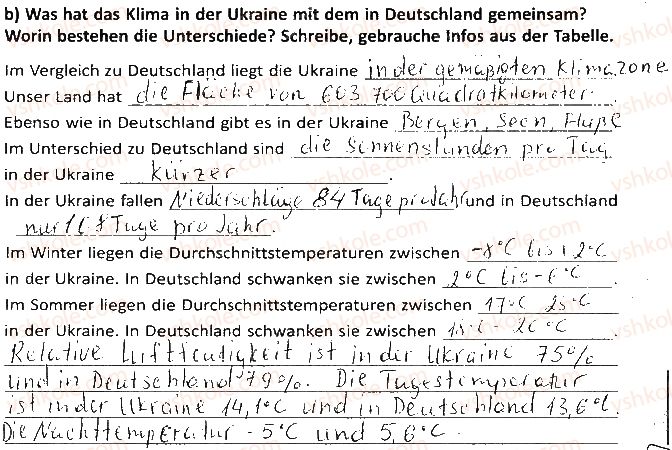 b) Was hat das Klima in der Ukraine mit dem in Deutschland gemeinsam?
Worin bestehen die Unterschiede? Schreibe, gebrauche Infos aus der Tabelle.
Im Vergleich zu Deutschland liegt die Ukraine in der gemäßigten Klimazone
Unser Land hat die Fläche von 603 700 Quadratkilometer.
Ebenso wie in Deutschland gibt es in der Ukraine Bergen, Seen, Flüße
Im Unterschied zu Deutschland sind die Sonnenstunden pro Tag
in der Ukraine kürzer.
In der Ukraine fallen Niederschläge 84 Tage pro Jahr und in Deutschland
nur Tage pro Jahr.
Im Winter liegen die Durchschnittstemperaturen zwischen -8°C bis +2°C
in der Ukraine. In Deutschland schwanken sie zwischen 2°C bis -6°C.
Im Sommer liegen die Durchschnittstemperaturen zwischen 17°C 25°C
in der Ukraine. In Deutschland schwanken sie zwischen - 20°C
Relative Luftfeutigkeit ist in der Ukraine 75%
und in Deutschland 79%. Die Tagestemperatur
ist in der Ukraine 14,1°C und in Deutschland 13,6°C
Die Nachttemperatur -5°C und 5,6°C.